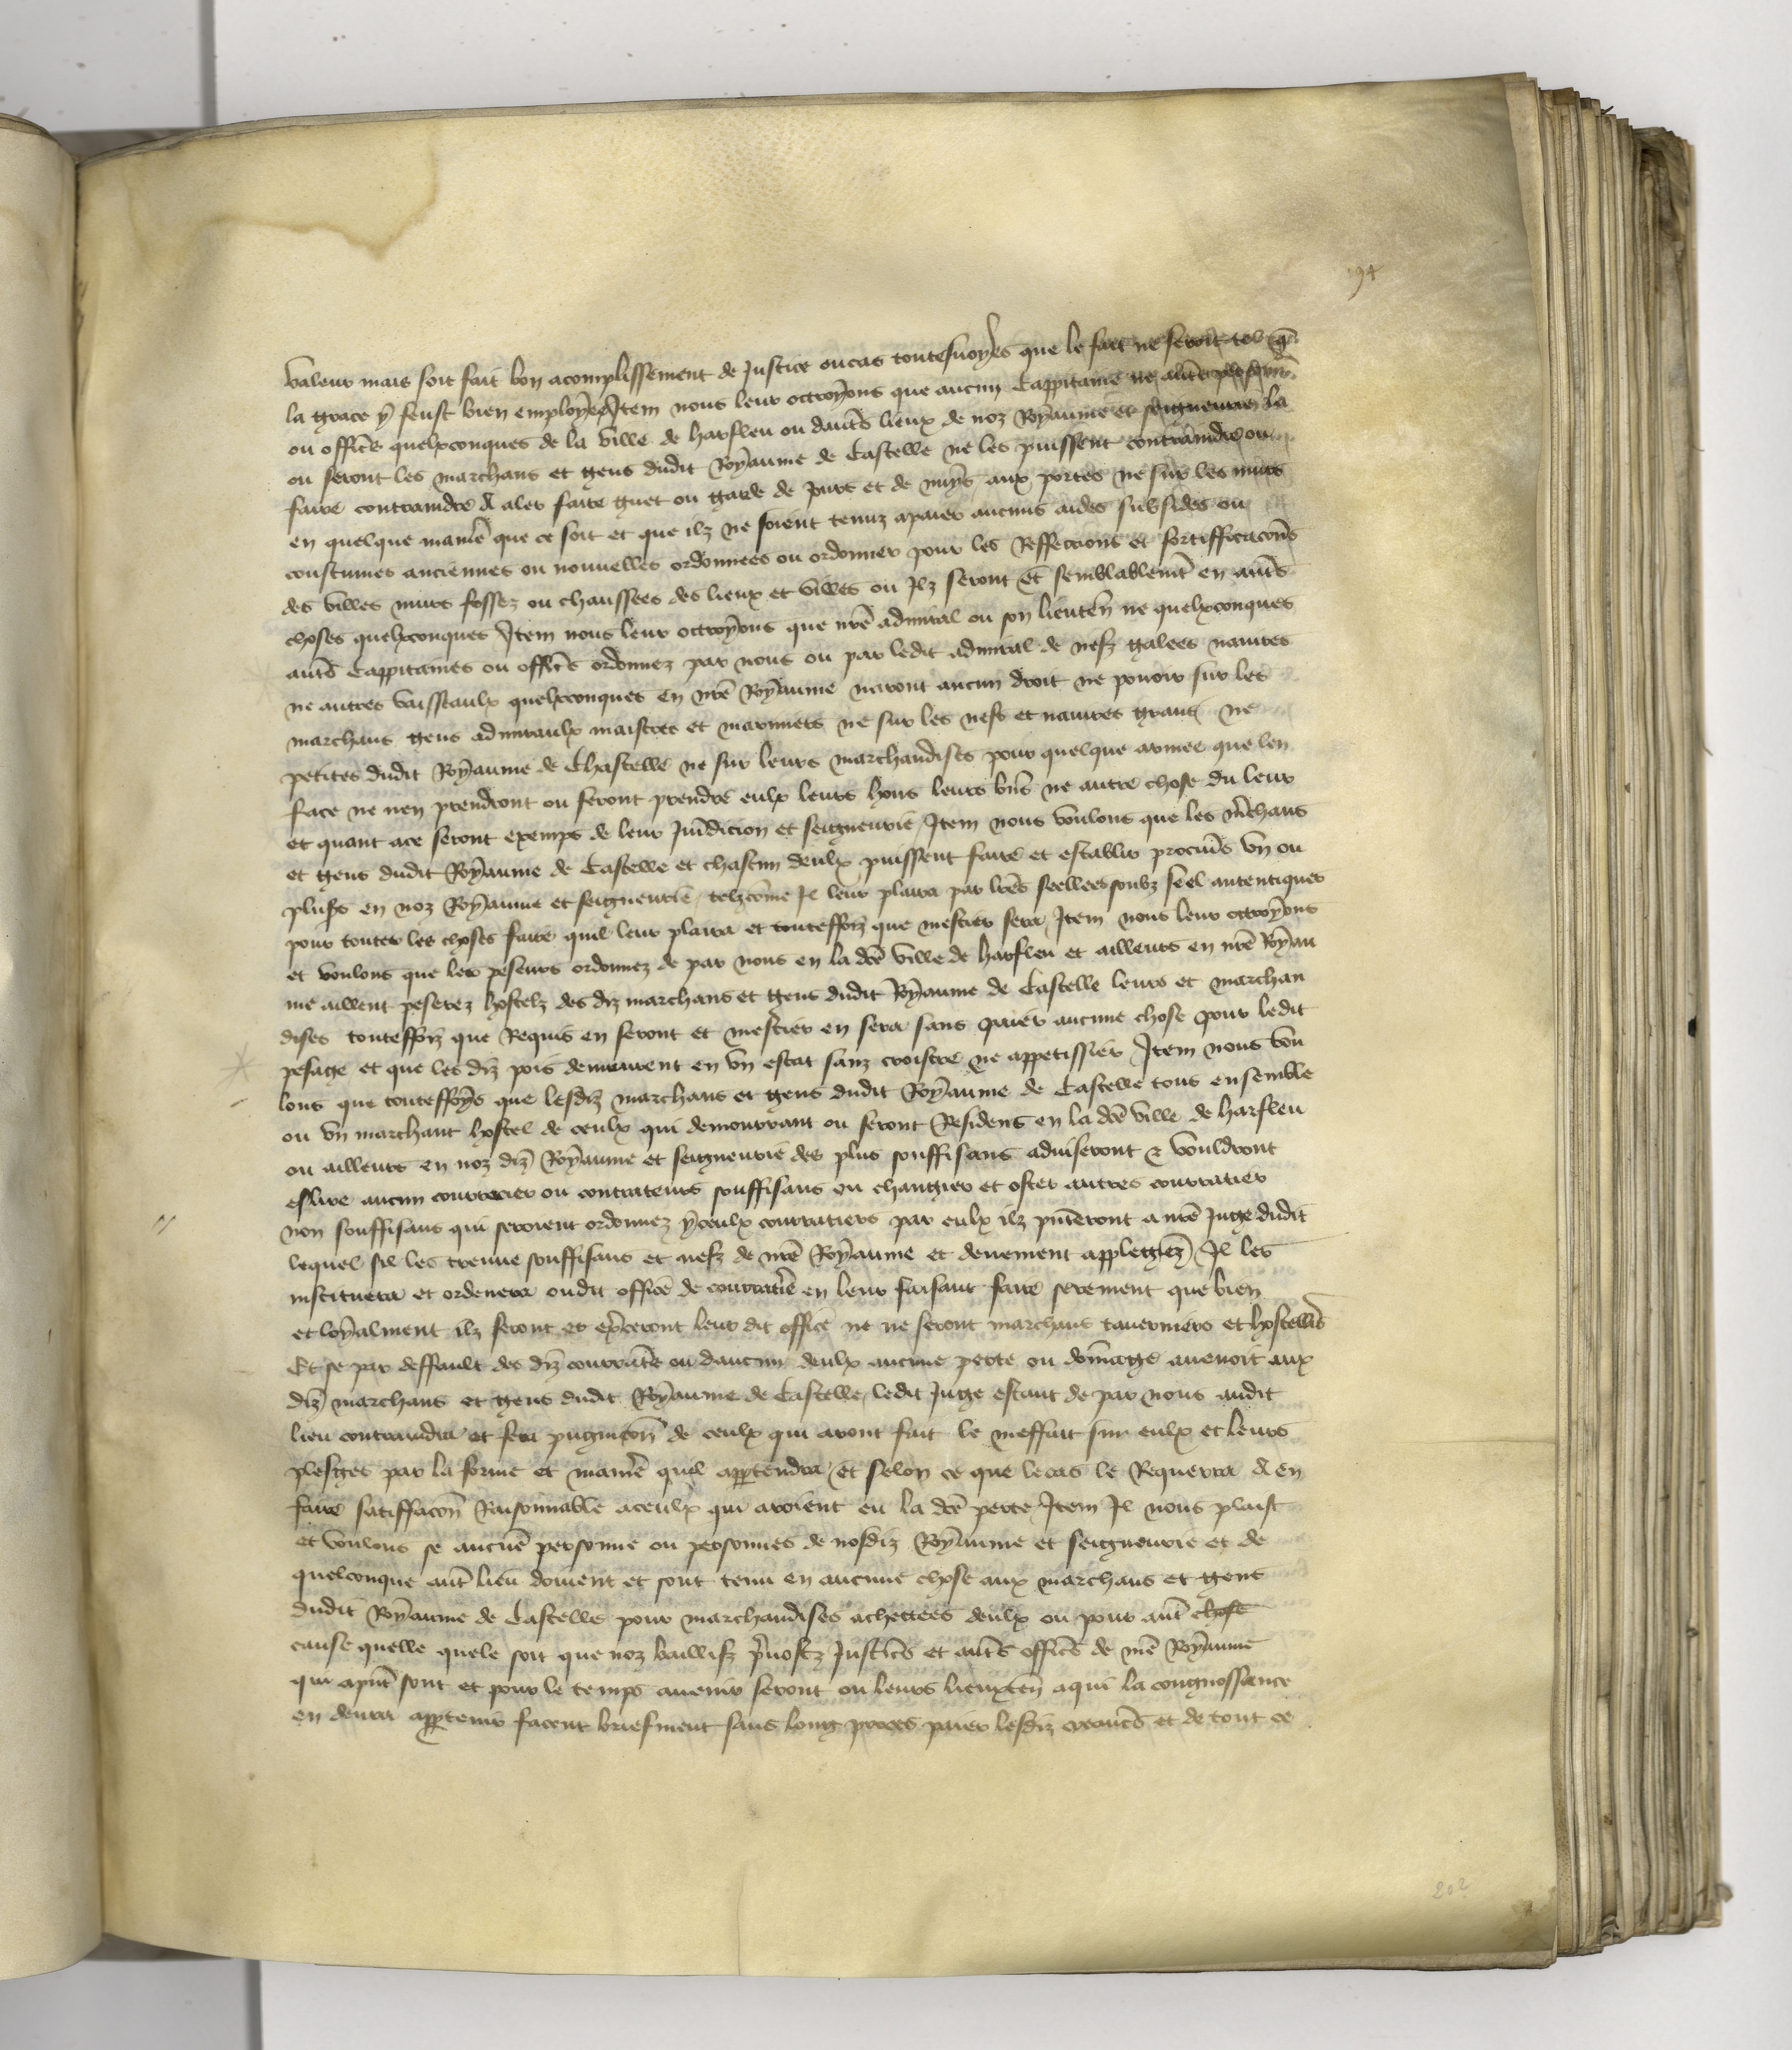 194
valeur mais soit fait bon acomplissement de Justice oucas toutesuoyes que le fait ne seroit tel q̄
la grace y feust bien employee Item nous leur octroyons que aucun Cappitaine ne aut̄s
ou offic̄s quelxconques de la ville de harfleu ou daut̄s lieux de noz Royaume et seigneurie la
ou seront les marchans et gens dudit Royaume de Castelle ne les puissent contraindre ou
faire contraindre A aler faire guet ou garde de jours et de nuys aux portes ne sur les murs
en quelque manie᷑ que ce soit et que ilz ne soient tenuz apaier aucuns aides subsides ou
coustumes anciennes ou nouuelles ordonnees ou ordonner pour les Reffections et fortifficacōns
des villes murs fossez ou chaussees des lieux et villes ou Ilz seront Et semblablemt̄ en aut̄s
choses quelxconques Item nous leur octroyons que nr̄e admiral ou son lieuten̄ ne quelxconques
aut̄s Cappitaines ou offic̄s ordonnez par nous ou par ledit admiral de nefz galees nauires
ne autres vaisseaulx quelxconques en nr̄e Royaume naront aucun droit ne pouoir sur les
marchans gens admiraulx maistres et mariniers ne sur les nefs et nauires grans ne
petites dudit Royaume de Chastelle ne sur leurs marchandises pour quelque armee que len
face ne nen prendront ou feront prendre eulx leurs hōns leurs bn̄s ne autre chose du leur
et quant ace seront exemps de leur Jur̄dicion et seigneurie Item nous voulons que les m̄chans
et gens dudit Royaume de Castelle et chascun deulx puissent faire et establir procur̄s vn ou
plus̄s en noz Royaume et seigneurie telz cōme Il leur plaira par lr̄es seellees soubz seel autentiques
pour toutes les choses faire quil leur plaira et touteffoiz que mestier sera Item nous leur octroyons
et voulons que les peseurs ordonnez de par nous en la dc̄e ville de harfleu et ailleurs en nr̄e Royau
me aillent peser ez hostelz des diz marchans et gens dudit Royaume de Castelle leurs et marchan
dises touteffoiz que Requis en seront et mestier en sera sans paier aucune chose pour ledit
pesage et que les diz pois demeurent en vn estat sanz croistre ne appetissier Item nous vou
lons que touteffoys que lesdiz marchans et gens dudit Royaume de Castelle tous ensemble
ou vn marchant hostel de ceulx qui demourront ou seront Residens en la dc̄e ville de harfleu
ou ailleurs en noz diz Royaume et seigneurie des plus souffisans aduiseront & vouldront
eslire aucun courretier ou couratteurs souffisans ou changier et oster autres courratier
non souffisans qui seroient ordonnez yceulx courratiers par eulx ilz pn̄teront a nr̄e Juge dudit
lequel sil les treuue souffisans et nefz de nr̄e Royaume et deuement applegiez Il les
instituera et ordenera oudit office de courratie᷑ en leur faisant faire serement que bien
et loyalment ilz feront et exc̄eront leur dit office ne ne seront marchans tauerniers et hostelliers
Et se par deffault des diz courrat̄s ou daucun deulx aucune perte ou dōmage auenoit aux
diz marchans et gens dudit Royaume de Castelle ledit Juge estant de par nous audit
lieu contraindra et fera pugnicōn de ceulx qui aront fait le meffait sur eulx et leurs
plesges par la forme et manie᷑ quil appartendra Et selon ce que le cas le Requerra A en
faire satiffacōn Raisonnable aceulx qui aroient eu la dc̄e perte Item Il nous plaist
et voulons se aucun̄e personne ou personnes de nosdiz Royaume et seigneurie et de
quelconque aut̄ lieu doiuent et sont tenu en aucune chose aux marchans et gens
dudit Royaume de Castelle pour marchandises achettees deulx ou pour aut̄ chose
cause quelle quele soit que noz bailliz p̄uostz Justic̄s et aut̄s offic̄s de nr̄e Royaume
qui apn̄t sont et pour le temps auenir seront ou leurs lieuxten̄ aqui la congnoissance
en deura appartenir facent briefment sans long proces paier lesdiz creanc̄s et de tout ce
202